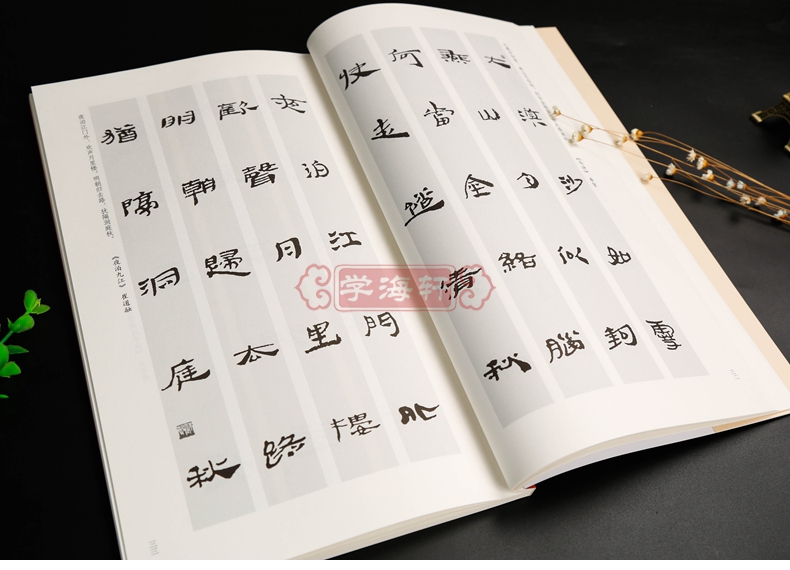 大漠沙如雪
燕山月似鉤
何當金絡腦
快走踏清秋
夜泊江門外
歡聲月里樓
明朝歸去路
猶隔洞庭秋
夜泊江门外，欢声月里楼。明朝归去路，犹隔洞庭秋。
《夜泊九江》 崔道融
学海轩